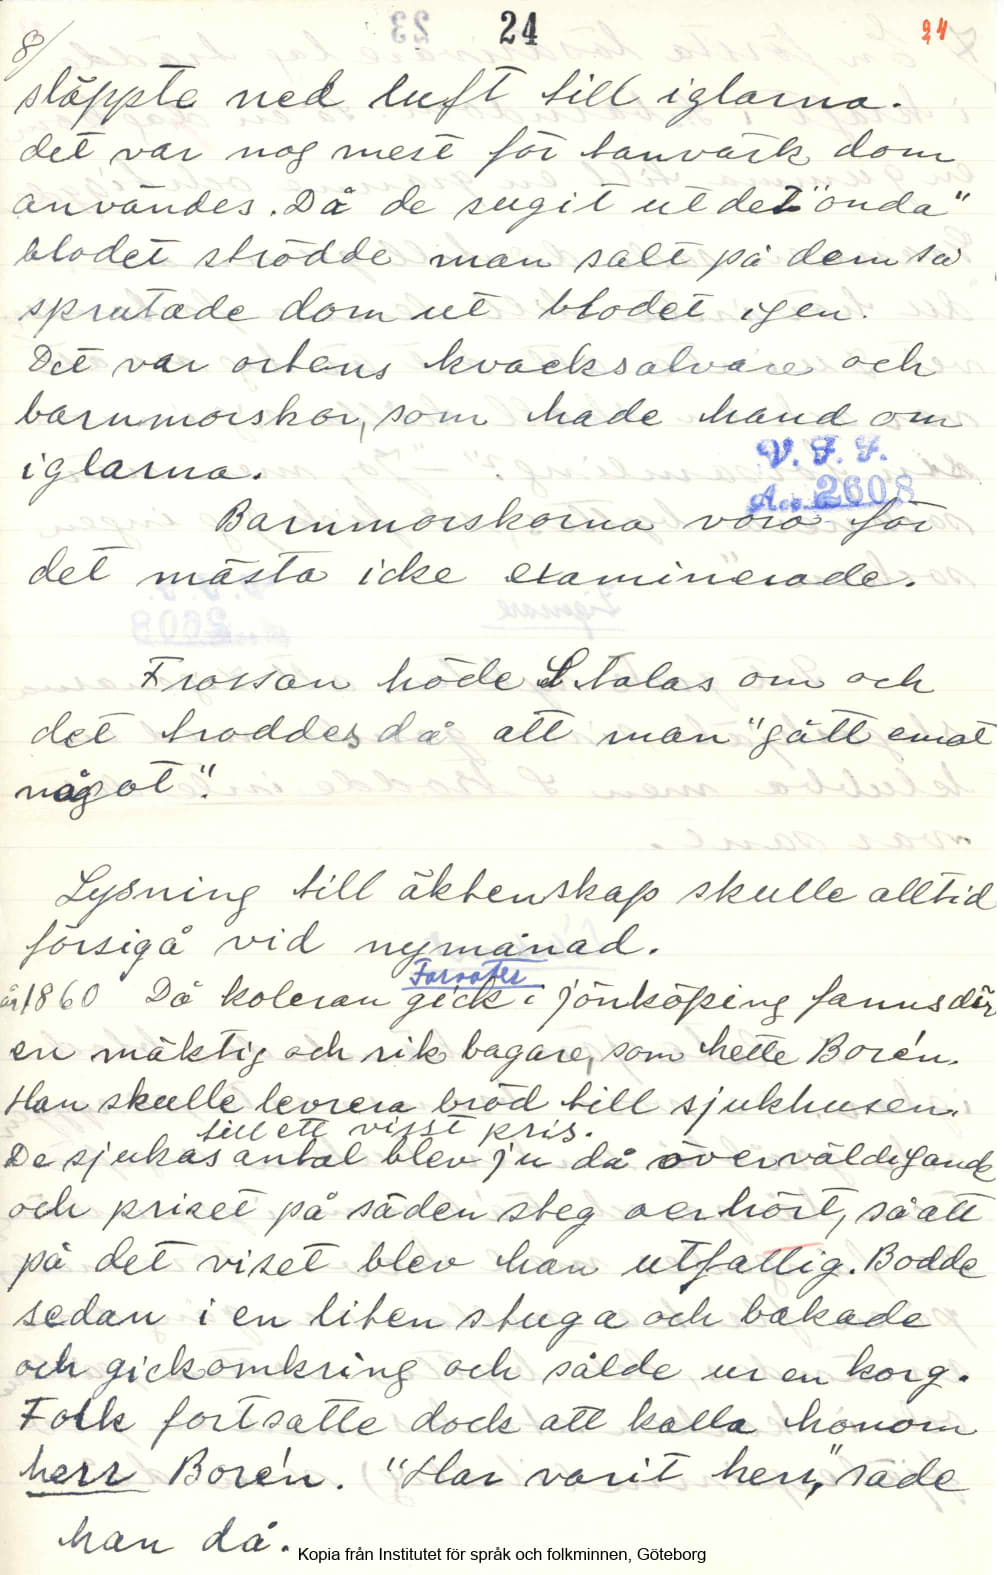 8/
24
24
släppte ned luft till iglarna.
det var nog mest för tanvärk dom
användes. Då de sugit ut det "onda"
blodet strödde man salt på dem så
sprutade dom ut blodet igen.
Det var ortens kvacksalvare och
barnmorskor, som hade hand om
iglarna.
V. F. F.
Acc. 2608
Barnmorskorna voro för
det mästa icke examinerade.
Frossan höde S talas om och
det troddes då att man "gått emot
något".
Lysning till äktenskap skulle alltid
försigå vid nymånad.
Farsoter
år 1860 Då koleran gick i Jönköping fanns där
en mäktig och rik bagare, som hette Borén.
Han skulle levrera bröd till sjukhusen.
till ett visst pris.
De sjukas antal blev ju då överväldigande
och priset på säden steg oerhört, så att
på det viset blev han utfattig. Bodde
sedan i en liten stuga och bakade
och gick omkring och sålde ur en korg.
Folk fortsatte dock att kalla honom
herr Borén. "Har varit herr," säde
han då.
Kopia från Institutet för språk och folkminnen, Göteborg